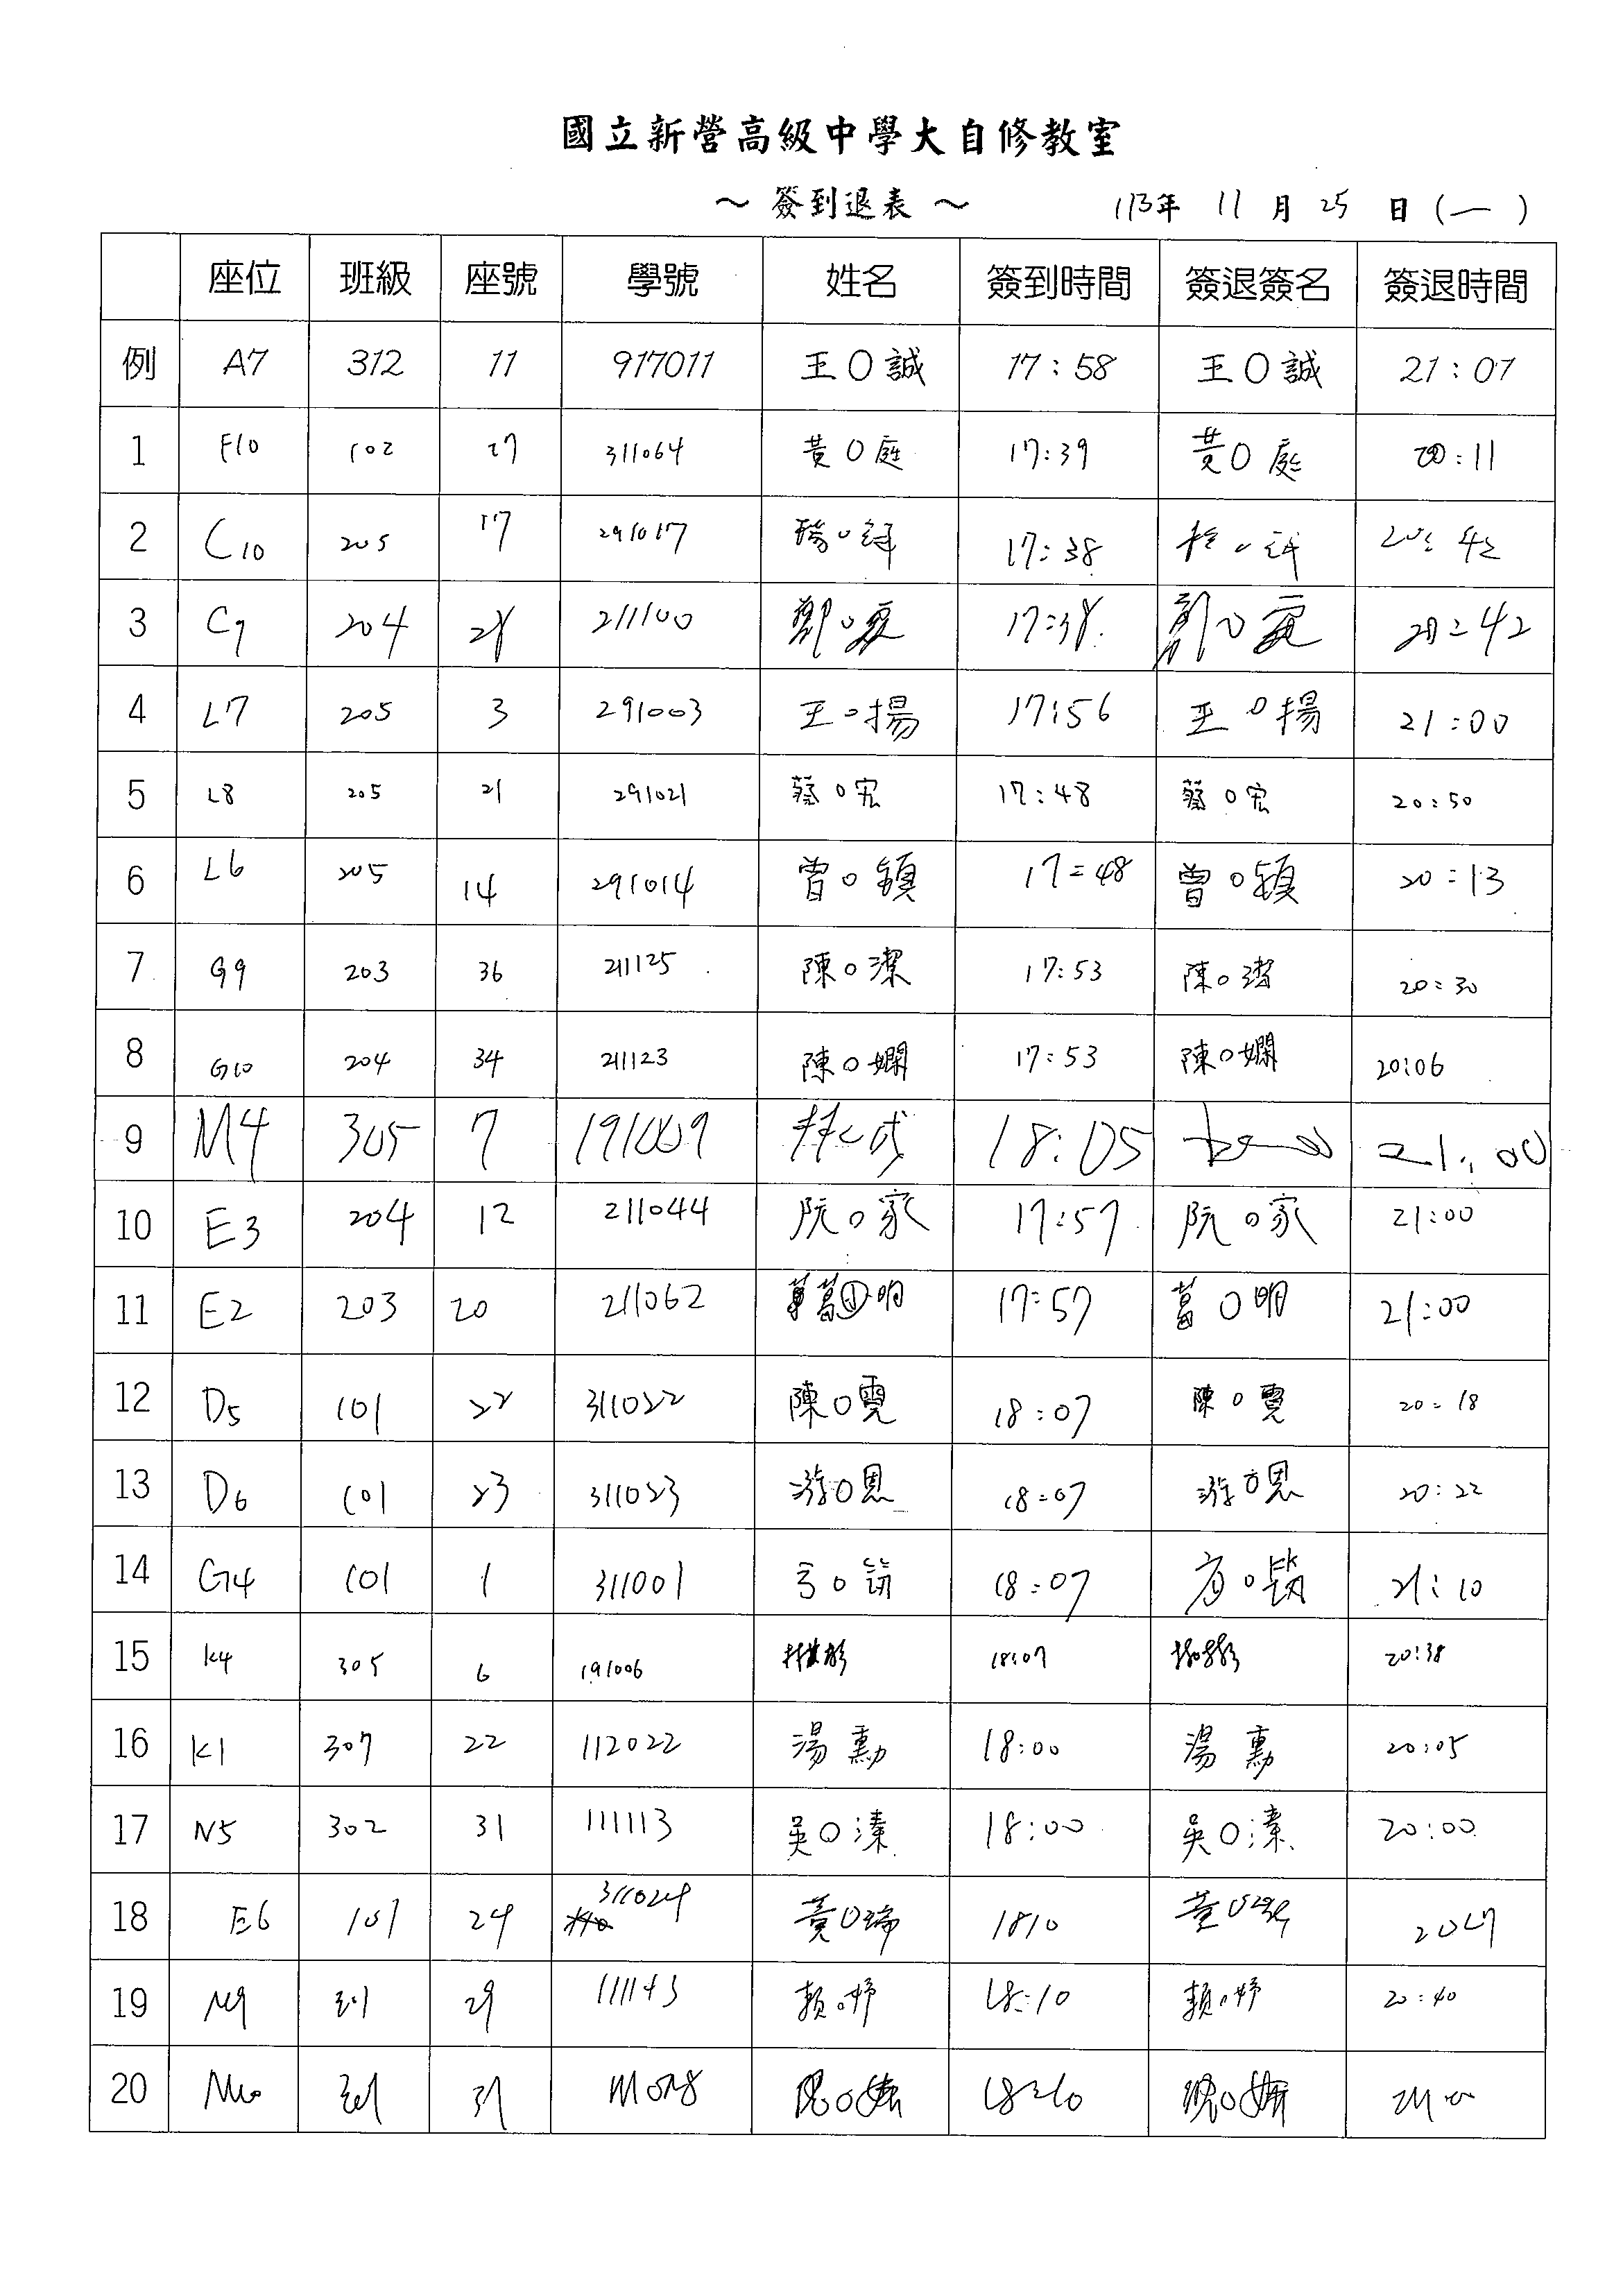 國立新營高級中學大自修教室
～ 簽到退表 ～ 113年 11 月 25 日 (一)
座位 班級 座號 學號 姓名 簽到時間 簽退簽名 簽退時間
例 A7 312 11 917011 王O誠 17:58 王O誠 21:07
1 F10 102 27 311064 黃O庭 17:39 黃O庭 20:11
2 C10 205 17 291017 楊O 17:38 20:42
3 C9 204 28 211100 鄭O 17:38 鄭O 20:42
4 L7 205 3 291003 王O揚 17:56 王O揚 21:00
5 L8 205 21 291021 蔡O宏 17:48 蔡O宏 20:50
6 L6 205 14 291014 曾O穎 17:48 曾O穎 20:13
7 G9 203 36 211125 陳O潔 17:53 陳O潔 20:30
8 G10 204 34 211123 陳O嫻 17:53 陳O嫻 20:06
9 M4 305 7 18:05 21:00
10 E3 204 12 211044 阮O家 17:57 阮O家 21:00
11 E2 203 20 211062 葛O明 17:57 葛O明 21:00
12 D5 101 22 311022 陳O霓 18:07 陳O霓 20:18
13 D6 101 23 311023 游O恩 18:07 游O恩 20:22
14 G4 101 1 311001 方O 18:07 方O 21:10
15 K4 305 6 191006 18:07 20:38
16 K1 307 22 112022 湯 勳 18:00 湯 勳 20:05
17 N5 302 31 111113 吳O溱 18:00 吳O溱 20:00
18 E6 101 24 311024 黃O瑞 1810 黃O瑞 2047
19 M9 301 29 111143 賴O妤 18:10 賴O妤 20:40
20 M10 301 31 倪O 18:10 倪O